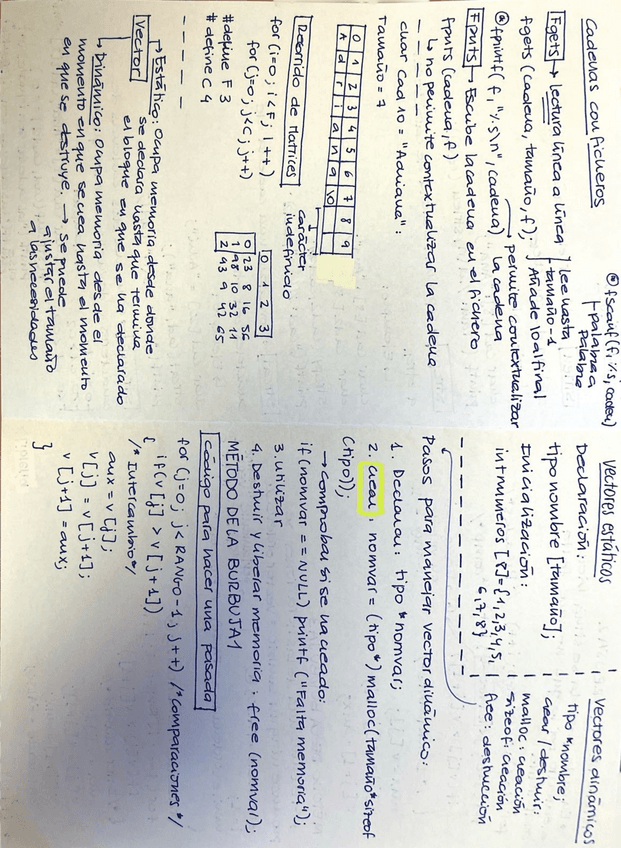 Cadenas con ficheros
Fgets → lectura línea a línea
fgets (cadena, tamaño, f);
lee hasta
tamaño-1
Añade \0 al final
fscanf (f, %s, cadena)
palabra a
palabra
fprintf (f, "%s\n", cadena)
permite contextualizar
la cadena
Fputs → Escribe la cadena en el fichero
fputs (cadena, f)
↳ no permite contextualizar la cadena
char cad 10 = "Adriana";
Tamaño = 7
0 1 2 3 4 5 6 7 8 9
A d r i a n a \0
carácter
indefinido
Recorrido de Matrices
for (i=0; i<F; i++)
for (j=0; j<C; j++)
#define F 3
#define C 4
0 1 2 3
0 23 8 16 56
1 98 10 32 11
2 43 9 42 65
Vector
→ Estático: Ocupa memoria desde donde
se declara hasta que termina
el bloque en que se ha declarado
→ Dinámico: Ocupa memoria desde el
momento en que se crea hasta el momento
en que se destruye. → Se puede
ajustar el tamaño
a las necesidades
Vectores estáticos
Declaración:
tipo nombre [tamaño];
Inicialización:
int numeros [8]={1,2,3,4,5,
6,7,8}
Vectores dinámicos
tipo *nombre;
crear / destruir:
malloc: creación
sizeof: creación
free: destrucción
Pasos para manejar vector dinámico:
1. Declarar: tipo *nomvar;
2. Crear: nomvar = (tipo*) malloc(tamaño*sizeof
(tipo));
→ Comprobar si se ha creado:
if (nomvar == NULL) printf ("Falta memoria");
3. utilizar
4. Destruir y liberar memoria: free (nomvar);
MÉTODO DE LA BURBUJA
Código para hacer una pasada
for (j=0; j < RANGO-1; j++) /*comparaciones*/
{ if (v[j] > v[j+1])
/* Intercambio*/
aux = v[j];
v[j] = v[j+1];
v[j+1] = aux;
}